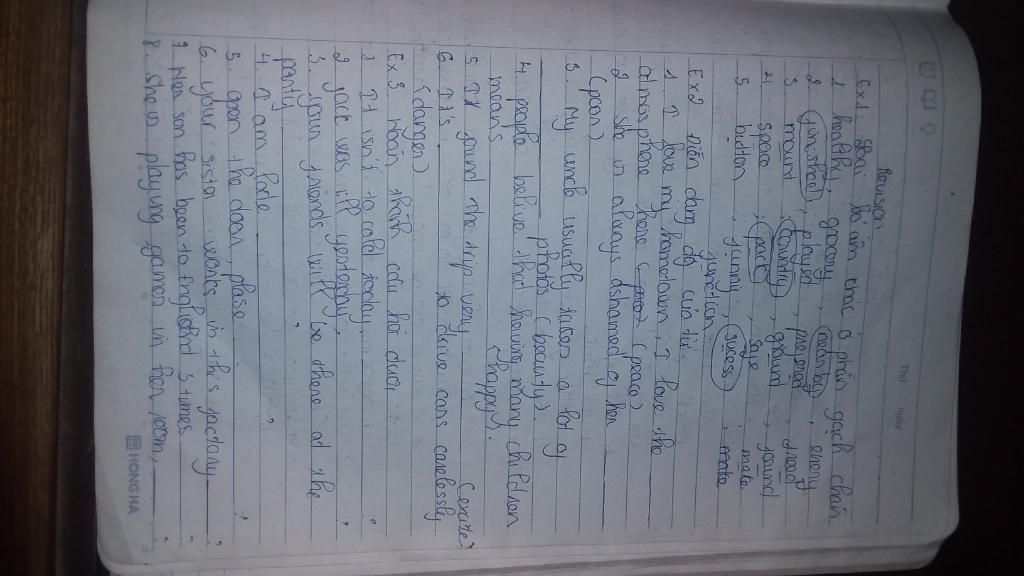 THỨ NGÀY
Revision
Ex1.
1 healthy, grocery, nearby, energy
2 finished, played, prepared,
3 mount, country, ground, found
4. space, pack, safe, mate
5. button, junny, success, mate
junction
Ex2 Điền dạng đg của từ
1 I love my hometown, I love the
atmosphere here (peace)
2 she is always ashamed of her
(poor)
3. My uncle usually takes a lot of
photos (beauty)
4. people belive that having many children
means (happy).
5 It found the trip very (excite)
6. It's to drive cars carelessly
(danger)
Ex3 Hoàn thành câu hỏi đuôi
1 It isn't to cold today, ?
2 Jack was ill yesterday, ?
3. your friends will be there at the
party ?
4. I am late ?
5. open the door, please ?
6. Your sister works in this factory ?
7 Her son has been to England 3 times ?
8. she is playing games in her room, ?
HONG HA